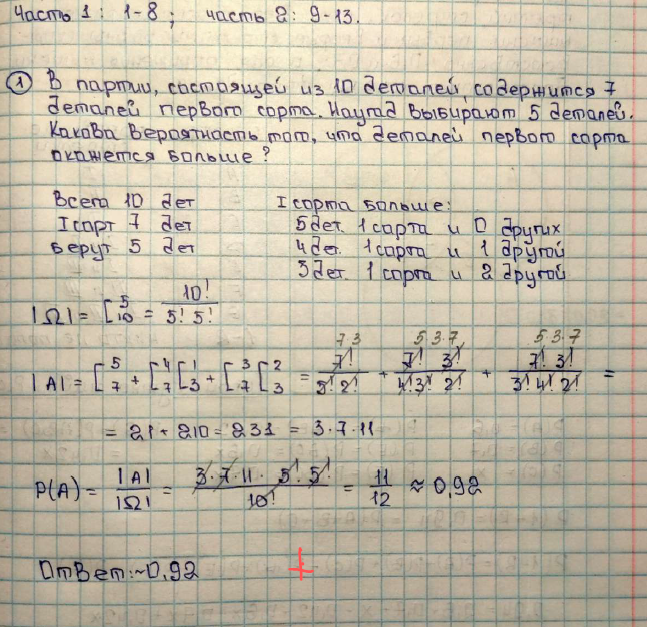 Часть 1: 1-8; часть 2: 9-13.
① В партии, состоящей из 10 деталей, содержится 7
деталей первого сорта. Наугад выбирают 5 деталей.
Какова вероятность того, что деталей первого сорта
окажется больше?
Всего 10 дет I сорта больше:
I сорт 7 дет 5 дет. 1 сорта и 0 других
берут 5 дет 4 дет. 1 сорта и 1 другой
3 дет. 1 сорта и 2 другой
|Ω| = C⁵₁₀ = 10! / 5! 5!
7 3 5·3·7 5·3·7
|A| = C⁵₇ + C⁴₇ C¹₃ + C³₇ C²₃ = 7! / 5! 2! + 7! 3! / 4! 3! 2! + 7! 3! / 3! 4! 2! =
= 21 + 210 = 231 = 3·7·11
P(A) = |A| / |Ω| = 3·7·11·5!·5! / 10! = 11 / 12 ≈ 0,92
Ответ: ~0,92 +